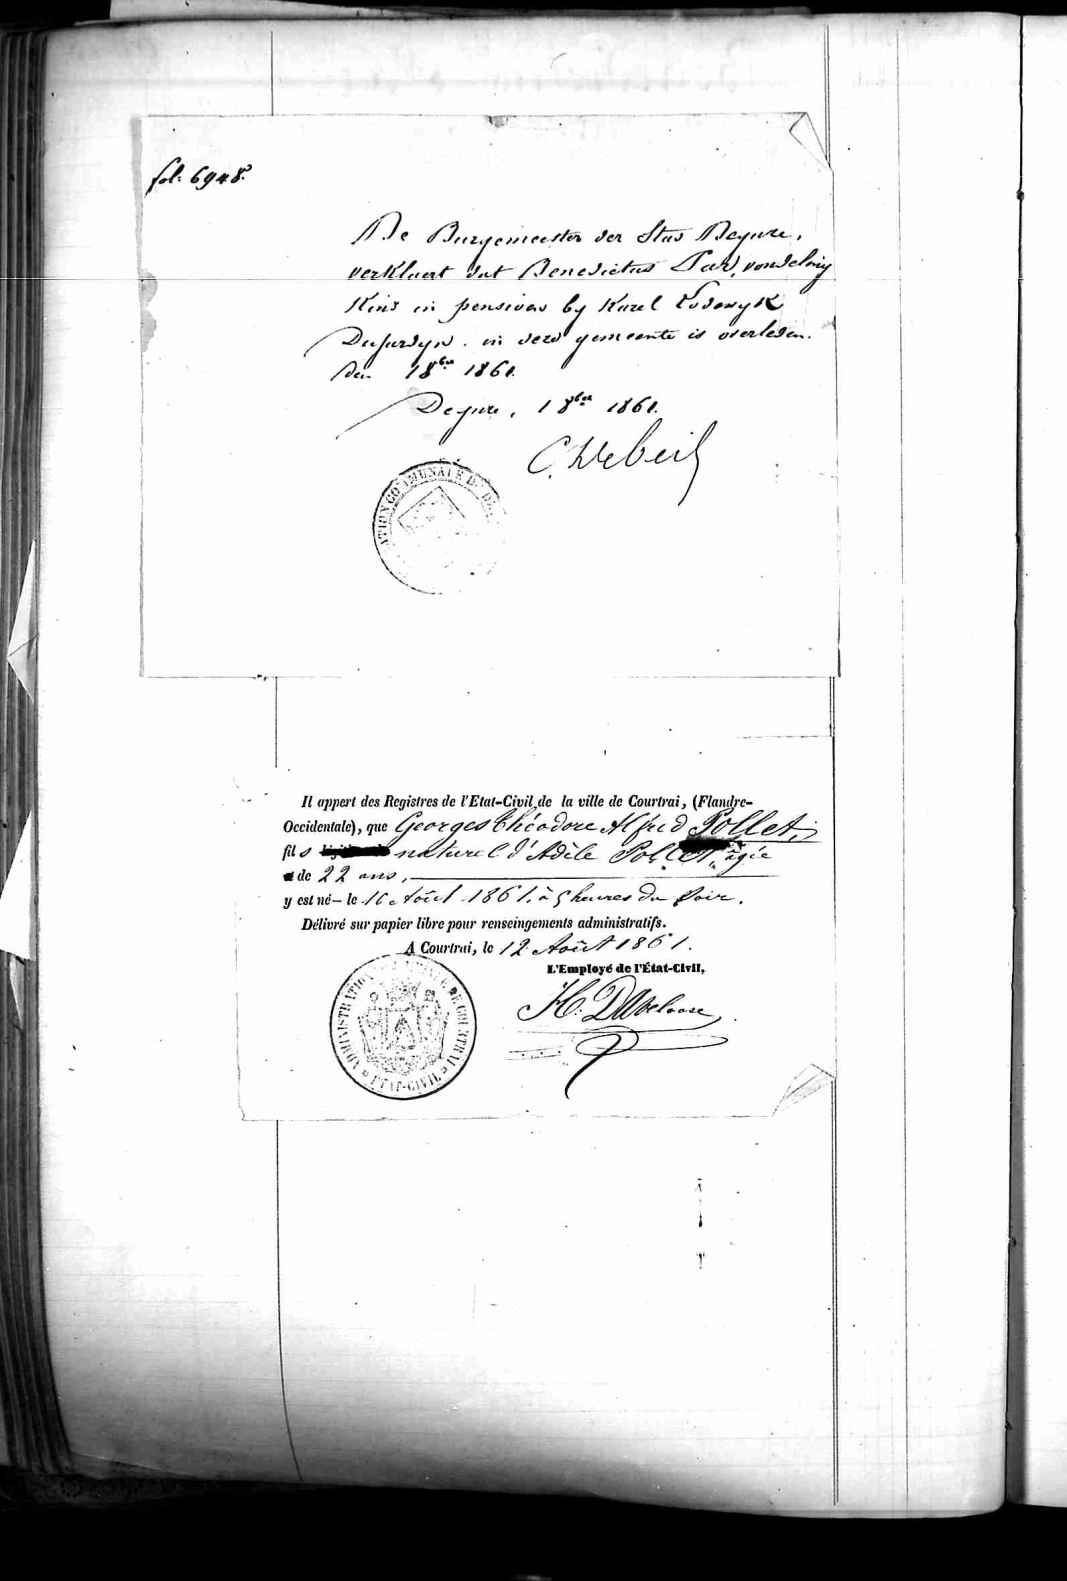 fol: 6948.
De Burgemeester der Stad Deynze,
verklaert dat Benedictus Par, vondeling
kind in pension by Karel Lodewyk
Dujardyn. in deze gemeente is overleden.
den 1 8ber 1861.
Deynze, 1 8ber 1861.
ATION COMMUNALE DE DE
Il appert des Registres de l'Etat-Civil de la ville de Courtrai, (Flandre-
Occidentale), que Georges Théodore Alfred Pollet,
fils naturel d'Adèle Pollet, âgée
de 22 ans,
y est né - le 10 Août 1861, à 5 heures du soir.
Délivré sur papier libre pour renseingements administratifs.
A Courtrai, le 12 Août 1861.
L'Employé de l'État-Civil,
ADMINISTRATION DE COURTRAI
ETAT-CIVIL